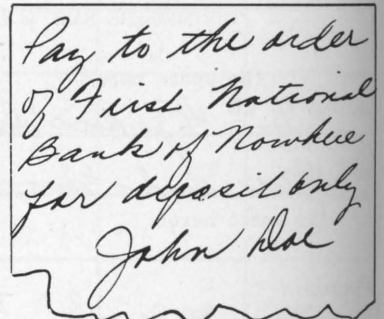 Pay to the order
of First National
Bank of Nowhere
for deposit only
John Doe